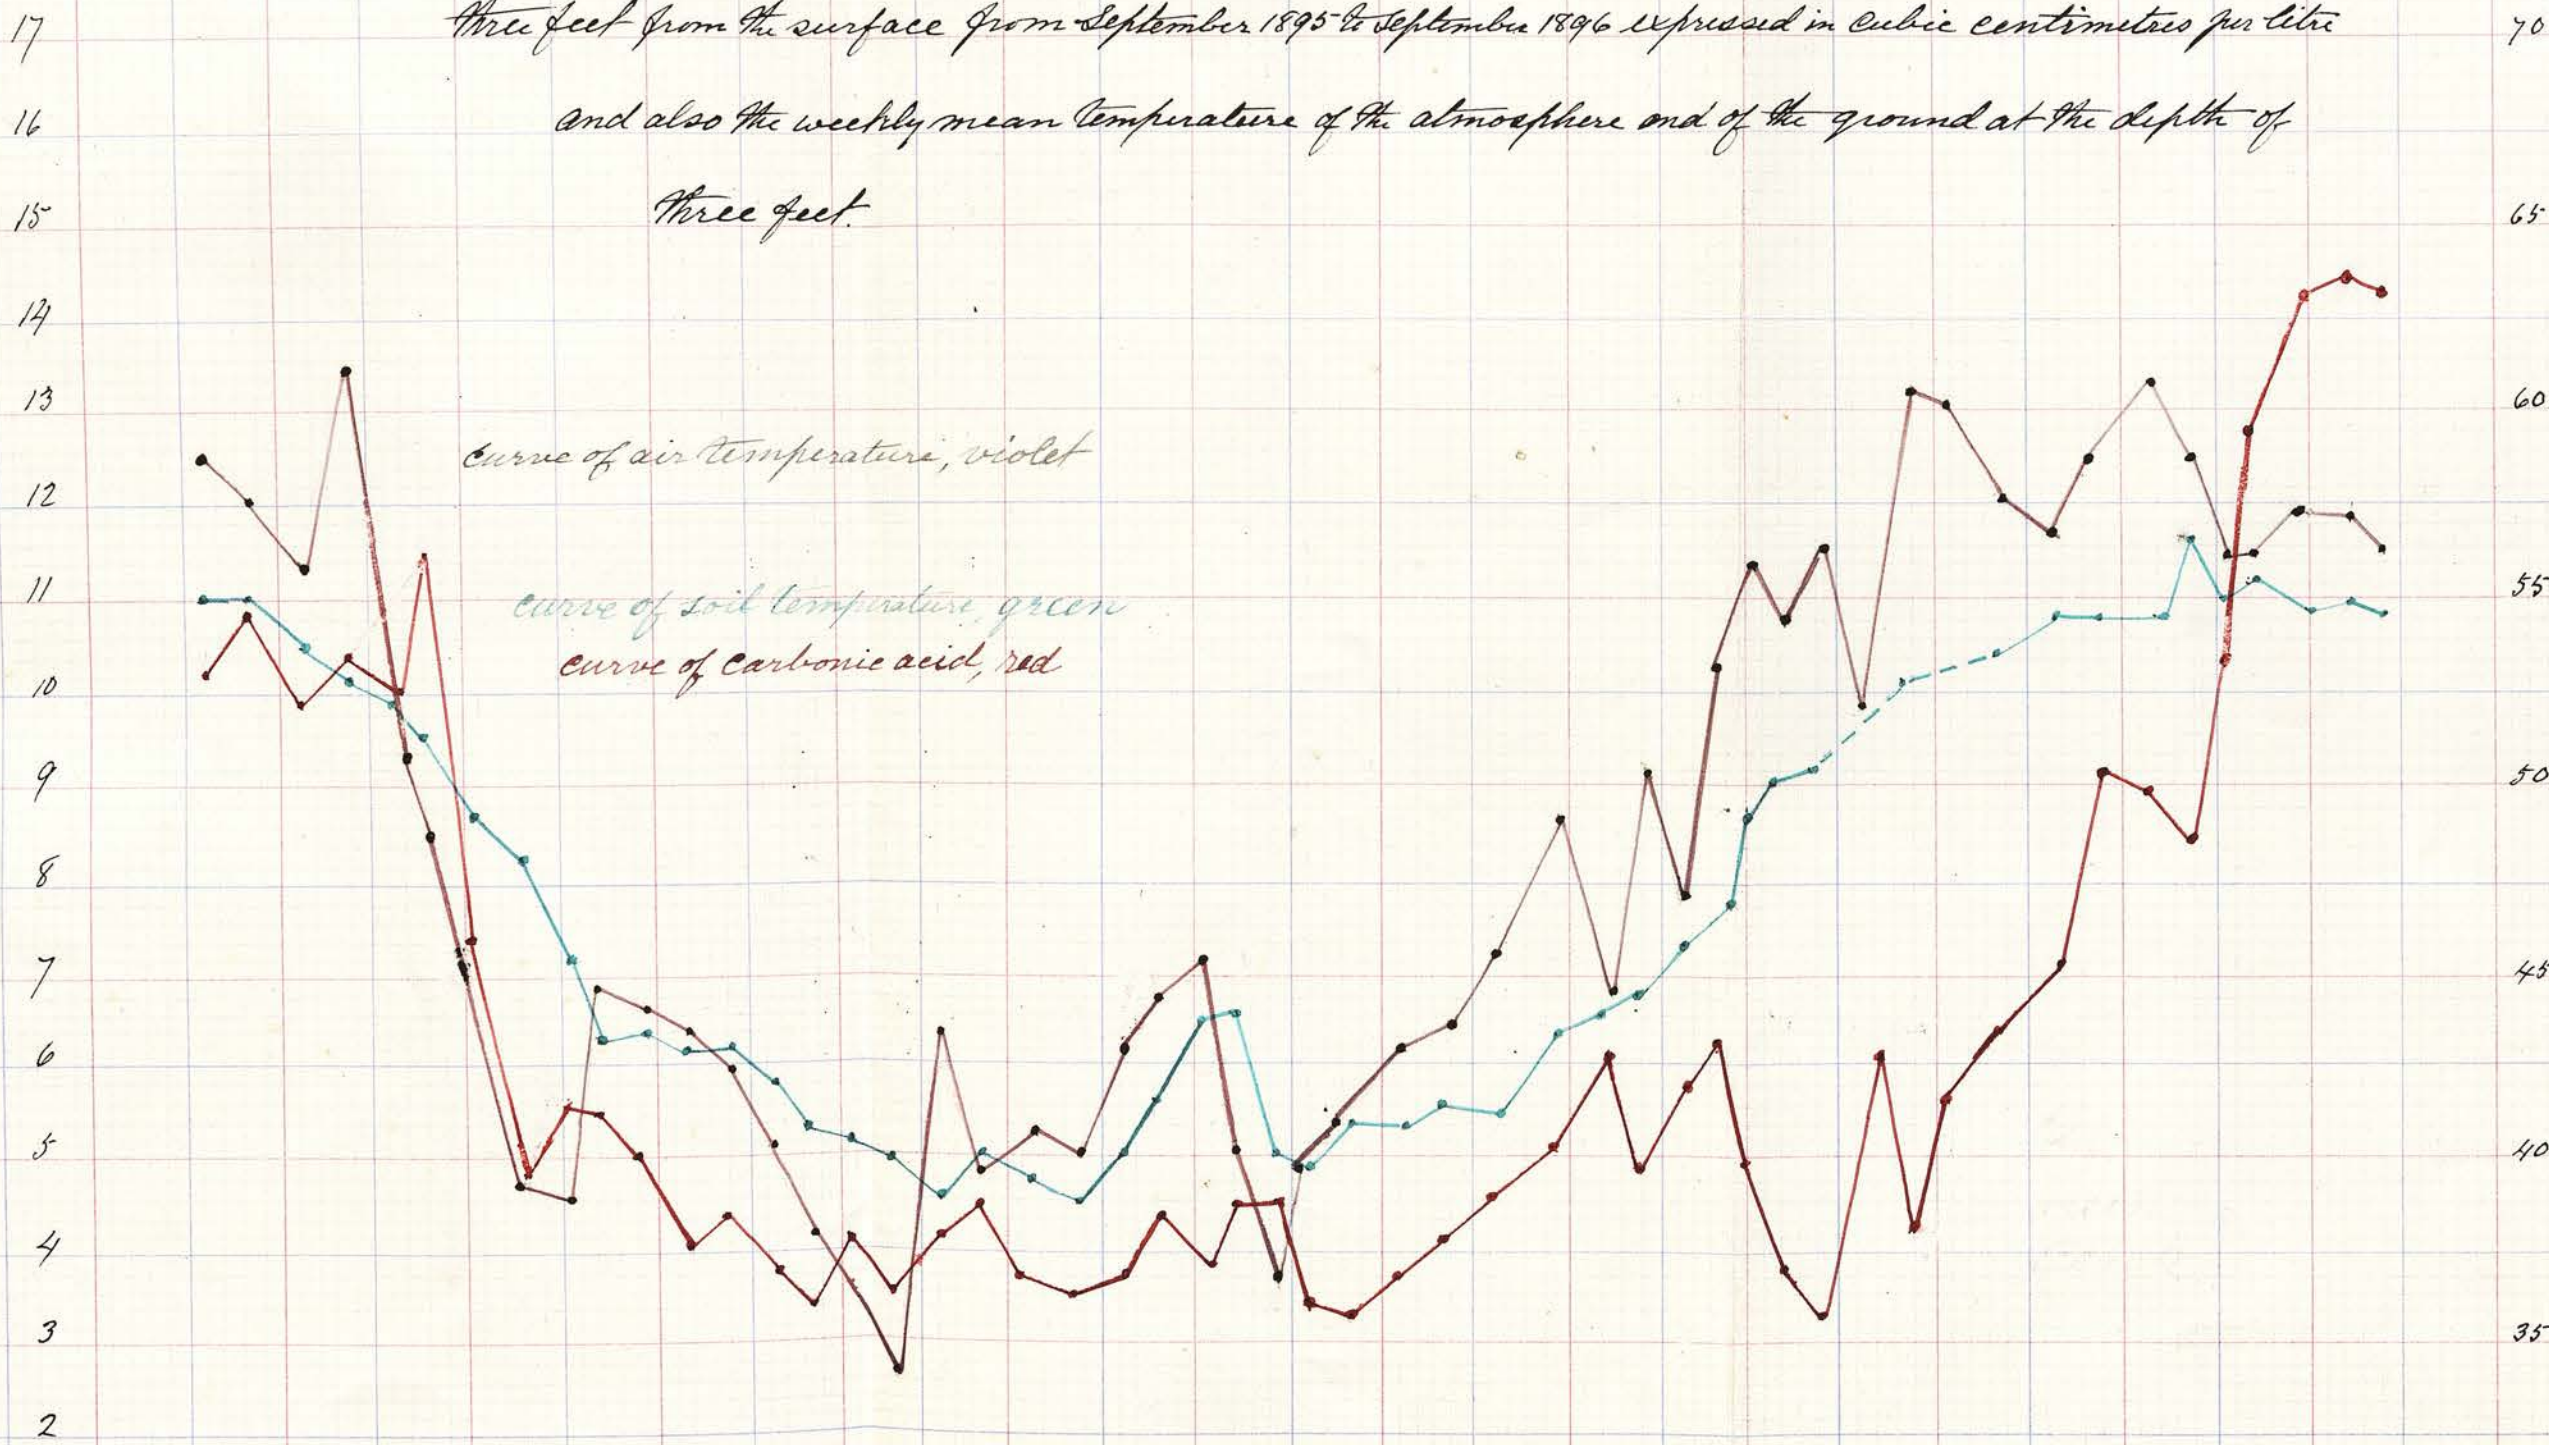 17 three feet from the surface from September 1895 to September 1896 expressed in cubic centimetres per litre 70
16 and also the weekly mean temperature of the atmosphere and of the ground at the depth of
15 three feet. 65
14
13 60
curve of air temperature, violet
12
11 curve of soil temperature, green 55
curve of carbonic acid, red
10
9 50
8
7 45
6
5 40
4
3 35
2